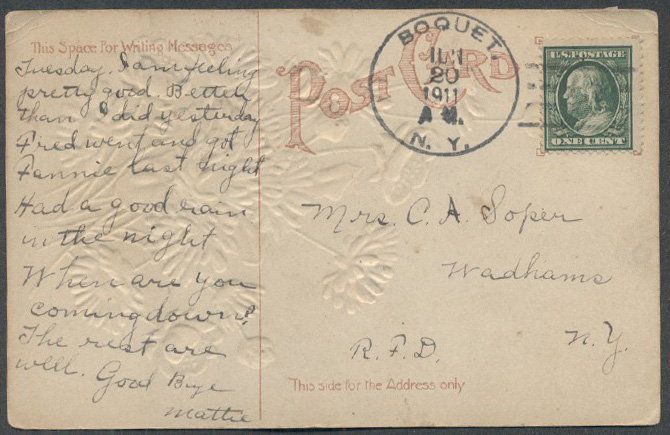 This Space For Writing Messages
POST CARD
BOQUET.
JUN
20
1911
A M.
N. Y.
U.S. POSTAGE
ONE CENT
Tuesday. I am feeling
pretty good. Better
than I did yesterday
Fred went and got
Fannie last night
Had a good rain
in the night
When are you
coming down?
The rest are
well. Good Bye
Mattie
Mrs. C. A. Soper
Wadhams
R.F.D. N.Y.
This side for the Address only